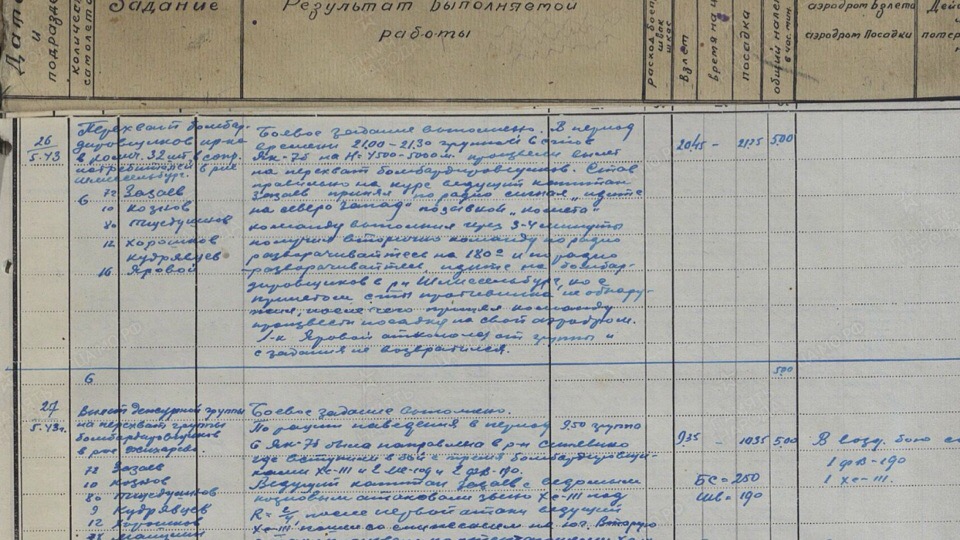 Дата и подразд
количес самолето
Задание
Результат выполняемой работы
расход боеп.
взлет
время на ц
посадка
общий налет в час. мин.
аэродром взлета
аэродром посадки
Дейс
потер
26
5.43
Перехват бомбар-
дировщиков пр-ка
в колич. 32 шт. в сопр.
истребителей в р-не
Шлиссельбург.
6
72 Зазаев
10 Козлов
80 Пустушков
12 Хорошков
Кудрявцев
16 Яровой
Боевое задание выполнено. В период
времени 21.00-21.30 группой в 6 сам
Як-7б на Н=4500-5000м. произвели вылет
на перехват бомбардировщиков. Став
правильно на курс ведущий капитан
Зазаев принял по радио сигнал "идите
на северо запад" позывков "комета"
команду выполнил через 3-4 минуты
получил вторично команду по радио
разворачивайтесь на 180° и по радио
разворачивайтесь идите на бомбар-
дировщиков в р-н Шлиссельбург, но с
противника не обнару-
жил, после чего принял команду
произвести посадку на свой аэродром.
Л-к Яровой откололся от группы и
с задания не возвратился.
2045 - 2125 5,00
6
5,00
27
5.43г.
Вылет дежурной группы
на перехват группы
бомбардировщиков
в р-не
72 Зазаев
10 Козлов
80 Пустушков
9 Кудрявцев
12 Хорошков
Боевое задание выполнено.
По рации наведения в период 950 группа
6 Як-7б была направлена в р-н Синявино
где вступили в бой с тремя бомбардировщи-
ками Хе-111 и 2 ме-109 и 2 фв-190.
Ведущий капитан Зазаев с ведомым
Козловым атаковали звено Хе-111 под
R= 2/4 после первой атаки ведущий
Хе-111 пошел со снижением на юг. Вторую
935 - 1035 5,00
БС=250
ШВ=190
В возд. бою с
1 фв-190
1 хе-111.